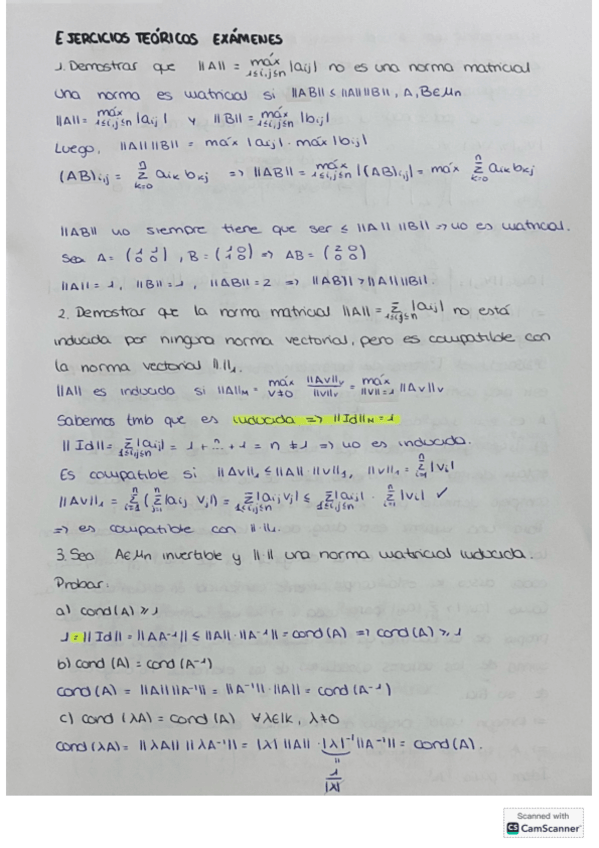 EJERCICIOS TEÓRICOS EXÁMENES
1. Demostrar que ||A|| = máx 1≤i,j≤n |aij| no es una norma matricial
una norma es matricial si ||AB|| ≤ ||A|| ||B||, A,B∈Mn
||A|| = máx 1≤i,j≤n |aij| y ||B|| = máx 1≤i,j≤n |bij|
Luego, ||A|| ||B|| = máx |aij| · máx |bij|
(AB)i,j = Σ k=0 n aik bkj => ||AB|| = máx 1≤i,j≤n |(AB)i,j| = máx Σ k=0 n aik bkj
||AB|| no siempre tiene que ser ≤ ||A|| ||B|| => no es matricial.
Sea A = (1 1 0 0), B = (1 0 1 0) => AB = (2 0 0 0)
||A|| = 1, ||B|| = 1, ||AB|| = 2 => ||AB|| > ||A|| ||B||.
2. Demostrar que la norma matricial ||A|| = Σ 1≤i,j≤n |aij| no está
inducida por ninguna norma vectorial, pero es compatible con
la norma vectorial ||.||1.
||A|| es inducida si ||A||M = máx v≠0 ||Av||v / ||v||v = máx ||v||=1 ||Av||v
Sabemos tmb que es inducida => ||Id||M = 1
||Id|| = Σ 1≤i,j≤n |aij| = 1 + n... + 1 = n ≠ 1 => no es inducida.
Es compatible si ||Av||1 ≤ ||A|| · ||v||1, ||v||1 = Σ i=1 n |vi|
||Av||1 = Σ i=1 n (Σ j=1 n |aij vj|) = Σ 1≤i,j≤n |aij vj| ≤ Σ 1≤i,j≤n |aij| · Σ i=1 n |vi| ✓
=> es compatible con ||·||1.
3. Sea A∈Mn invertible y ||·|| una norma matricial inducida.
Probar:
a) cond(A) ≥ 1
1 = ||Id|| = ||AA⁻¹|| ≤ ||A|| · ||A⁻¹|| = cond(A) => cond(A) ≥ 1
b) cond(A) = cond(A⁻¹)
cond(A) = ||A|| ||A⁻¹|| = ||A⁻¹|| · ||A|| = cond(A⁻¹)
c) cond(λA) = cond(A) ∀λ∈K, λ≠0
cond(λA) = ||λA|| ||λA⁻¹|| = |λ| ||A|| · |λ|⁻¹ ||A⁻¹|| = cond(A).
||
1
|λ|
Scanned with
CS CamScanner